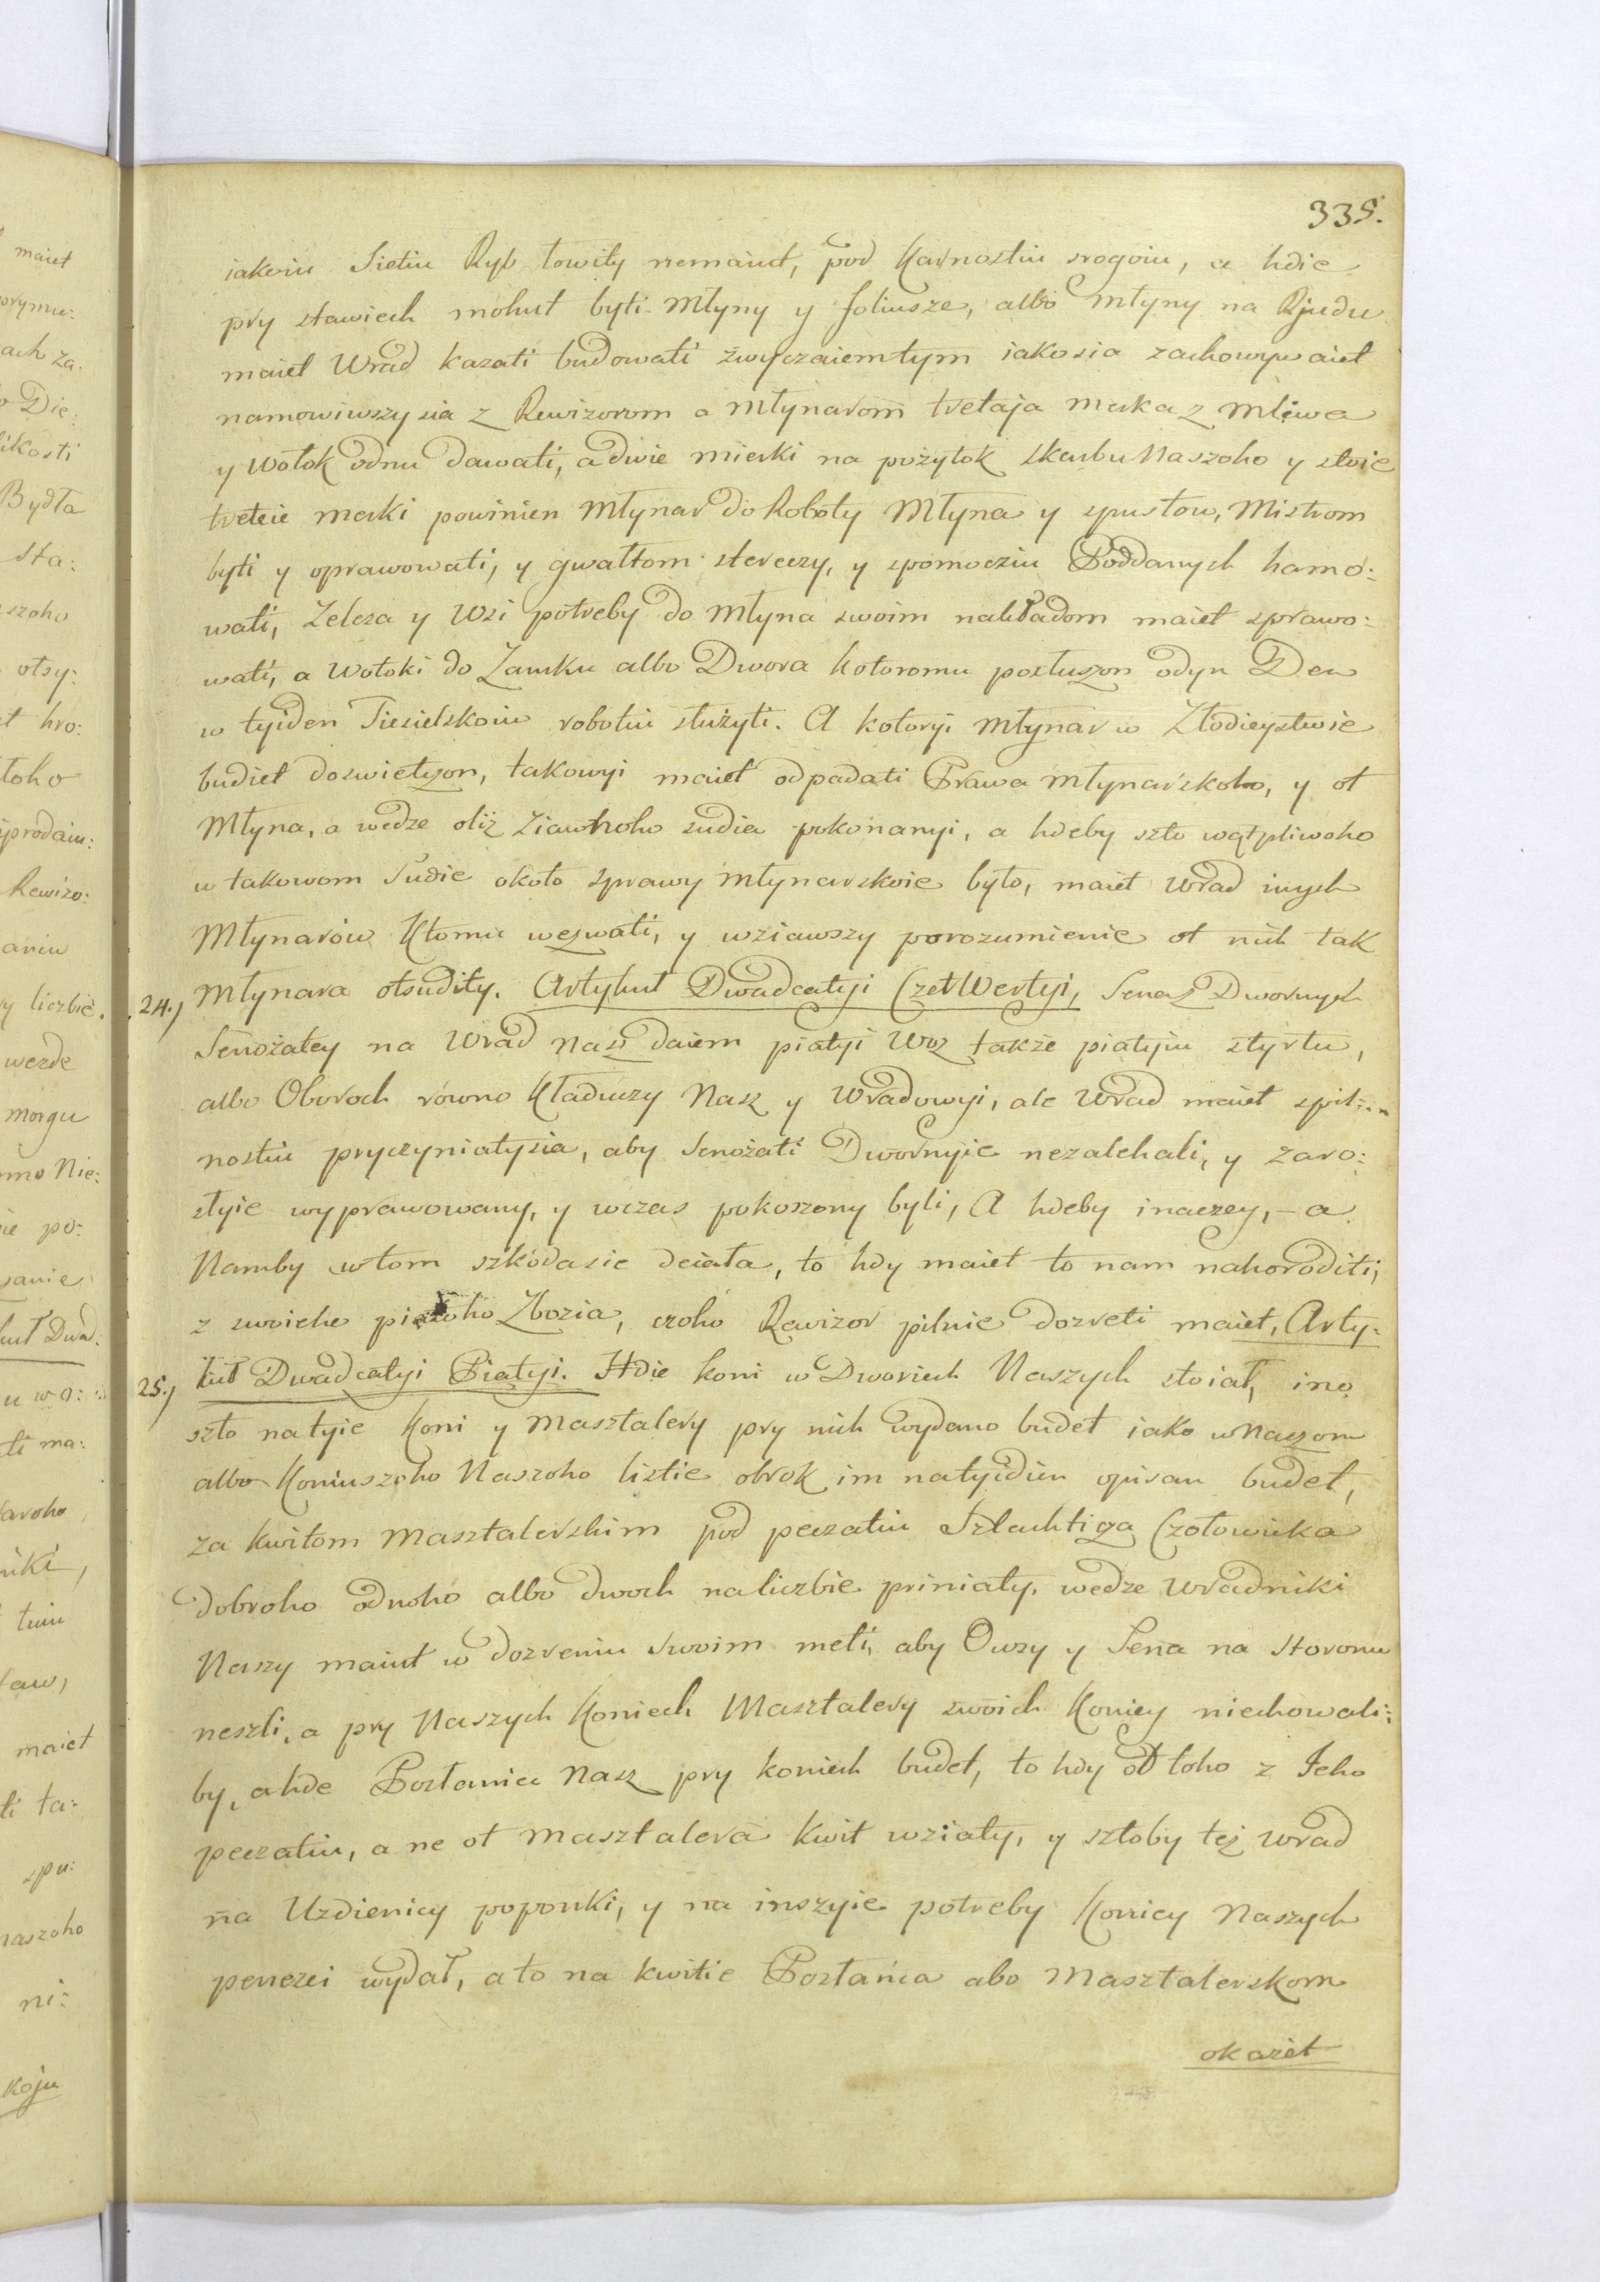 335.
iakoiu Sietiu Ryb łowiły nemaiut, pod Karnostiu srogoiu, a hdie
pry stawiech mohut byti Młyny y foliusze, albo Młyny na Rjudu
maiet Wrad kazati budowati zwyczaiem tym iakosia zachowywaiet
namowiwszysia z Rewizorom a Młynarom tretaja merka z mlewa
y Wołok odnu dawati, a dwie mierki na pożytok skarbu Naszoho y stoie
treteie merki powinien Młynar do Roboty Młyna y spustow, Mistrom
byti y oprawowati, y gwałtom stereczy, y spomocziu Poddanych hamo:
wati, Zeleza y Wsi potreby do Młyna swoim nakładom maiet sprawo:
wati, a Wołoki do Zamku albo Dwora kotoromu posłuszon odyn Den
w tyiden Tiesielskoiu robotiu służyti. A kotoryi Młynar w Złodieystwie
budiet doswietszon, takowyi maiet odpadati Prawa Młynarskoho, y ot
Młyna, a wedze oliż ziawnoho sudia pokonanyi, a hdeby szto wątpliwoho
w takowom Sudie około sprawy Młynarskoie było, maiet Wrad inych
Młynarów Ktomu wezwati, y wziawszy porozumienie ot nich tak
24.) Młynara otsudity. Artykuł Dwadcatyi CzetWertyi, Sena z Dwornych
Senożatey na Wrad Nasz daiem piatyi Woz także piatyiu styrtu,
albo Oboroch równo Kładuczy Nasz y Wradowyi, ale Wrad maiet spil:
nostiu pryczyniatysia, aby Senożati Dwornyie nezalehali, y zaro:
słyie wyprawowany, y wczas pokoszony byli, A hdeby inaczey, - a
Namby wtom szkodasie deiała, to hdy maiet to nam nahoroditi,
z swoieho piatoho Zbozia, czoho Rewizor pilnie dozreti maiet, Arty:
25.) kuł Dwadcatyi Piatyi. Hdie koni w Dworiech Naszych stoiat, ino
szto natyie Koni y Masztalery pry nich wydano budet iako w Naszom
albo Koniuszoho Naszoho listie obrok im natyidien opisan budet,
za kwitom Masztalerskim pod peczatiu Szlachtiza Czołowieka
dobroho odnoho albo dwoch naliczbie priniaty, wedze Wradniki
Naszy maiut w dozreniu Swoim meti, aby Owsy y Sena na Storonu
neszli, a pry Naszych Koniech Masztalery swoich Koniey niechowali:
by, a hde Posłaniec Nasz pry koniech budet, to hdy ot toho z Jeho
peczatiu, a ne ot Masztalera Kwit wziaty, y sztoby tez Wrad
na Uzdienicy poponki, y na inszyie potreby Koniey Naszych
penezei wydał, a to na kwitie Posłańca abo Masztalerskom
okażet